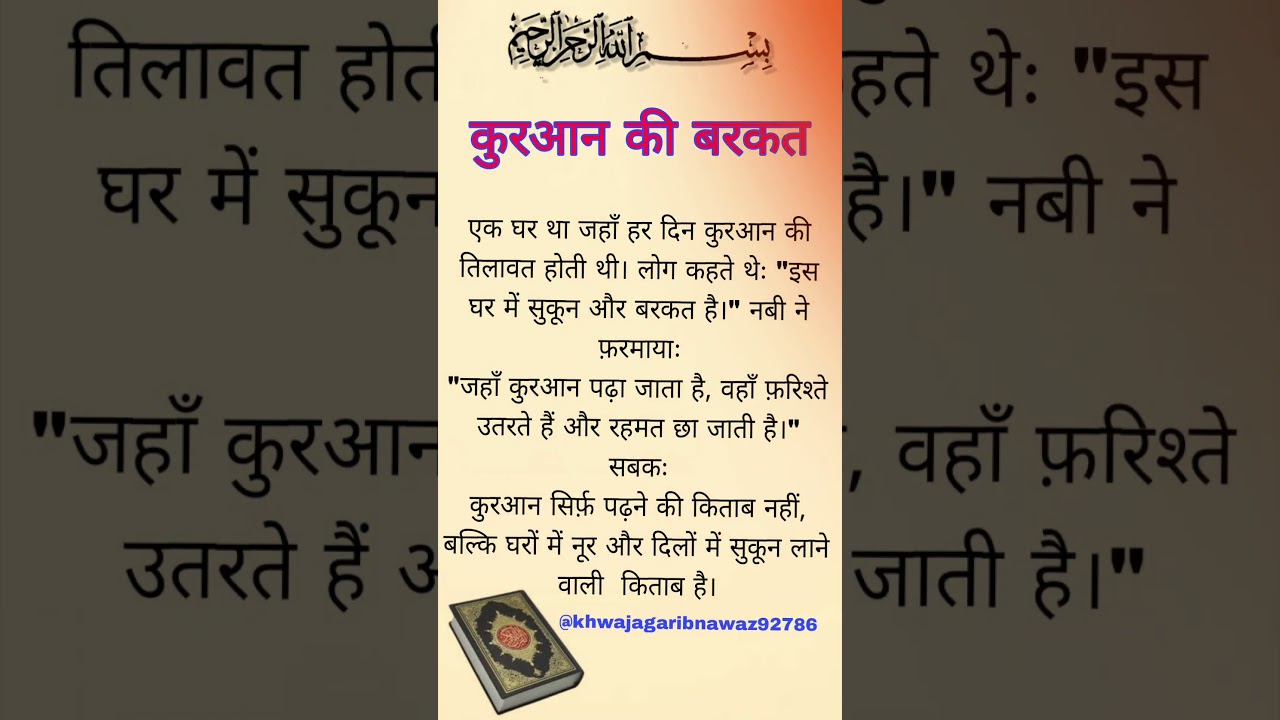 بِسْمِ اللهِ الرَّحْمٰنِ الرَّحِيْمِ
कुरआन की बरकत
एक घर था जहाँ हर दिन कुरआन की
तिलावत होती थी। लोग कहते थेः "इस
घर में सुकून और बरकत है।" नबी ने
फ़रमायाः
"जहाँ कुरआन पढ़ा जाता है, वहाँ फ़रिश्ते
उतरते हैं और रहमत छा जाती है।"
सबकः
कुरआन सिर्फ़ पढ़ने की किताब नहीं,
बल्कि घरों में नूर और दिलों में सुकून लाने
वाली किताब है।
@khwajagaribnawaz92786
तिलावत होती
हते थेः "इस
घर में सुकून
है।" नबी ने
"जहाँ कुरआन
, वहाँ फ़रिश्ते
उतरते हैं
जाती है।"